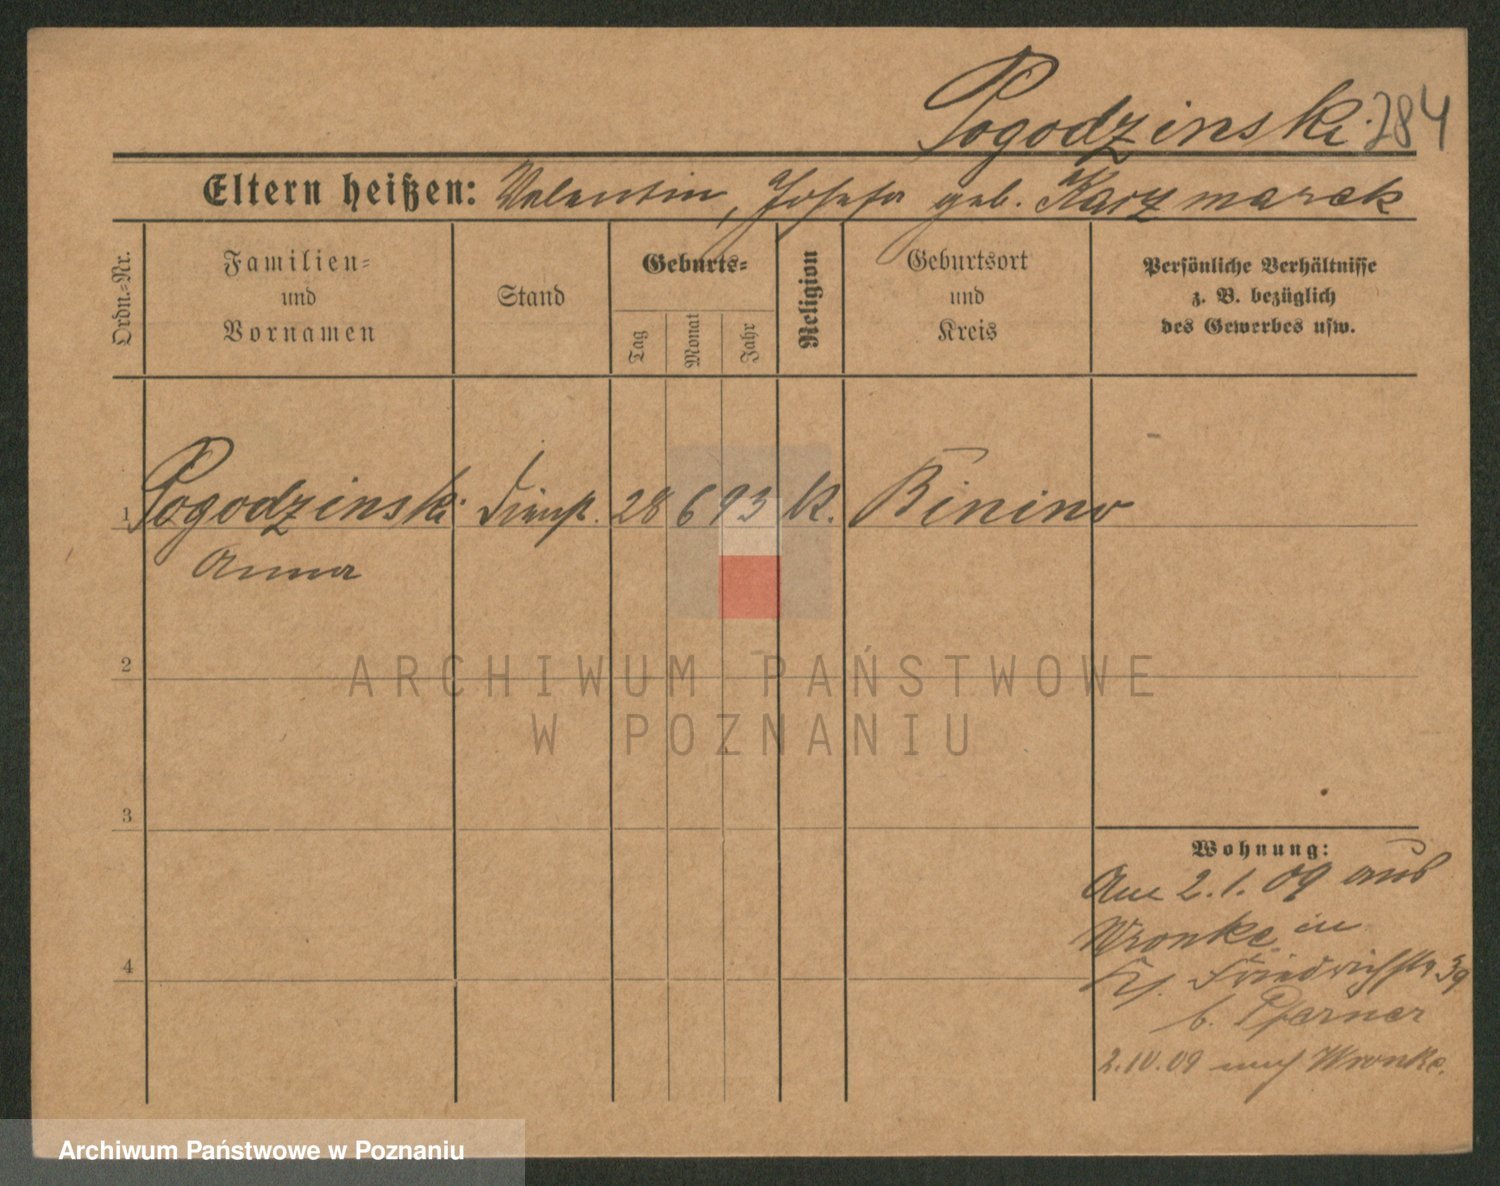 Pogodzinski 284
Eltern heißen: Valentin, Josefa geb. Karzmarek
Ordn.-Nr.
Familien-
und
Vornamen
Stand
Geburts-
Tag
Monat
Jahr
Religion
Geburtsort
und
Kreis
Persönliche Verhältnisse
z. B. bezüglich
des Gewerbes usw.
1 Pogodzinski Dienst. 28 6 93 k. Binino
Anna
2
3
4
Wohnung:
Am 2.1.09 aus
Wronke in
Friedrichstr 39
b. Pfarrer
2.IV.09 nach Wronke.
ARCHIWUM PAŃSTWOWE
W POZNANIU
Archiwum Państwowe w Poznaniu